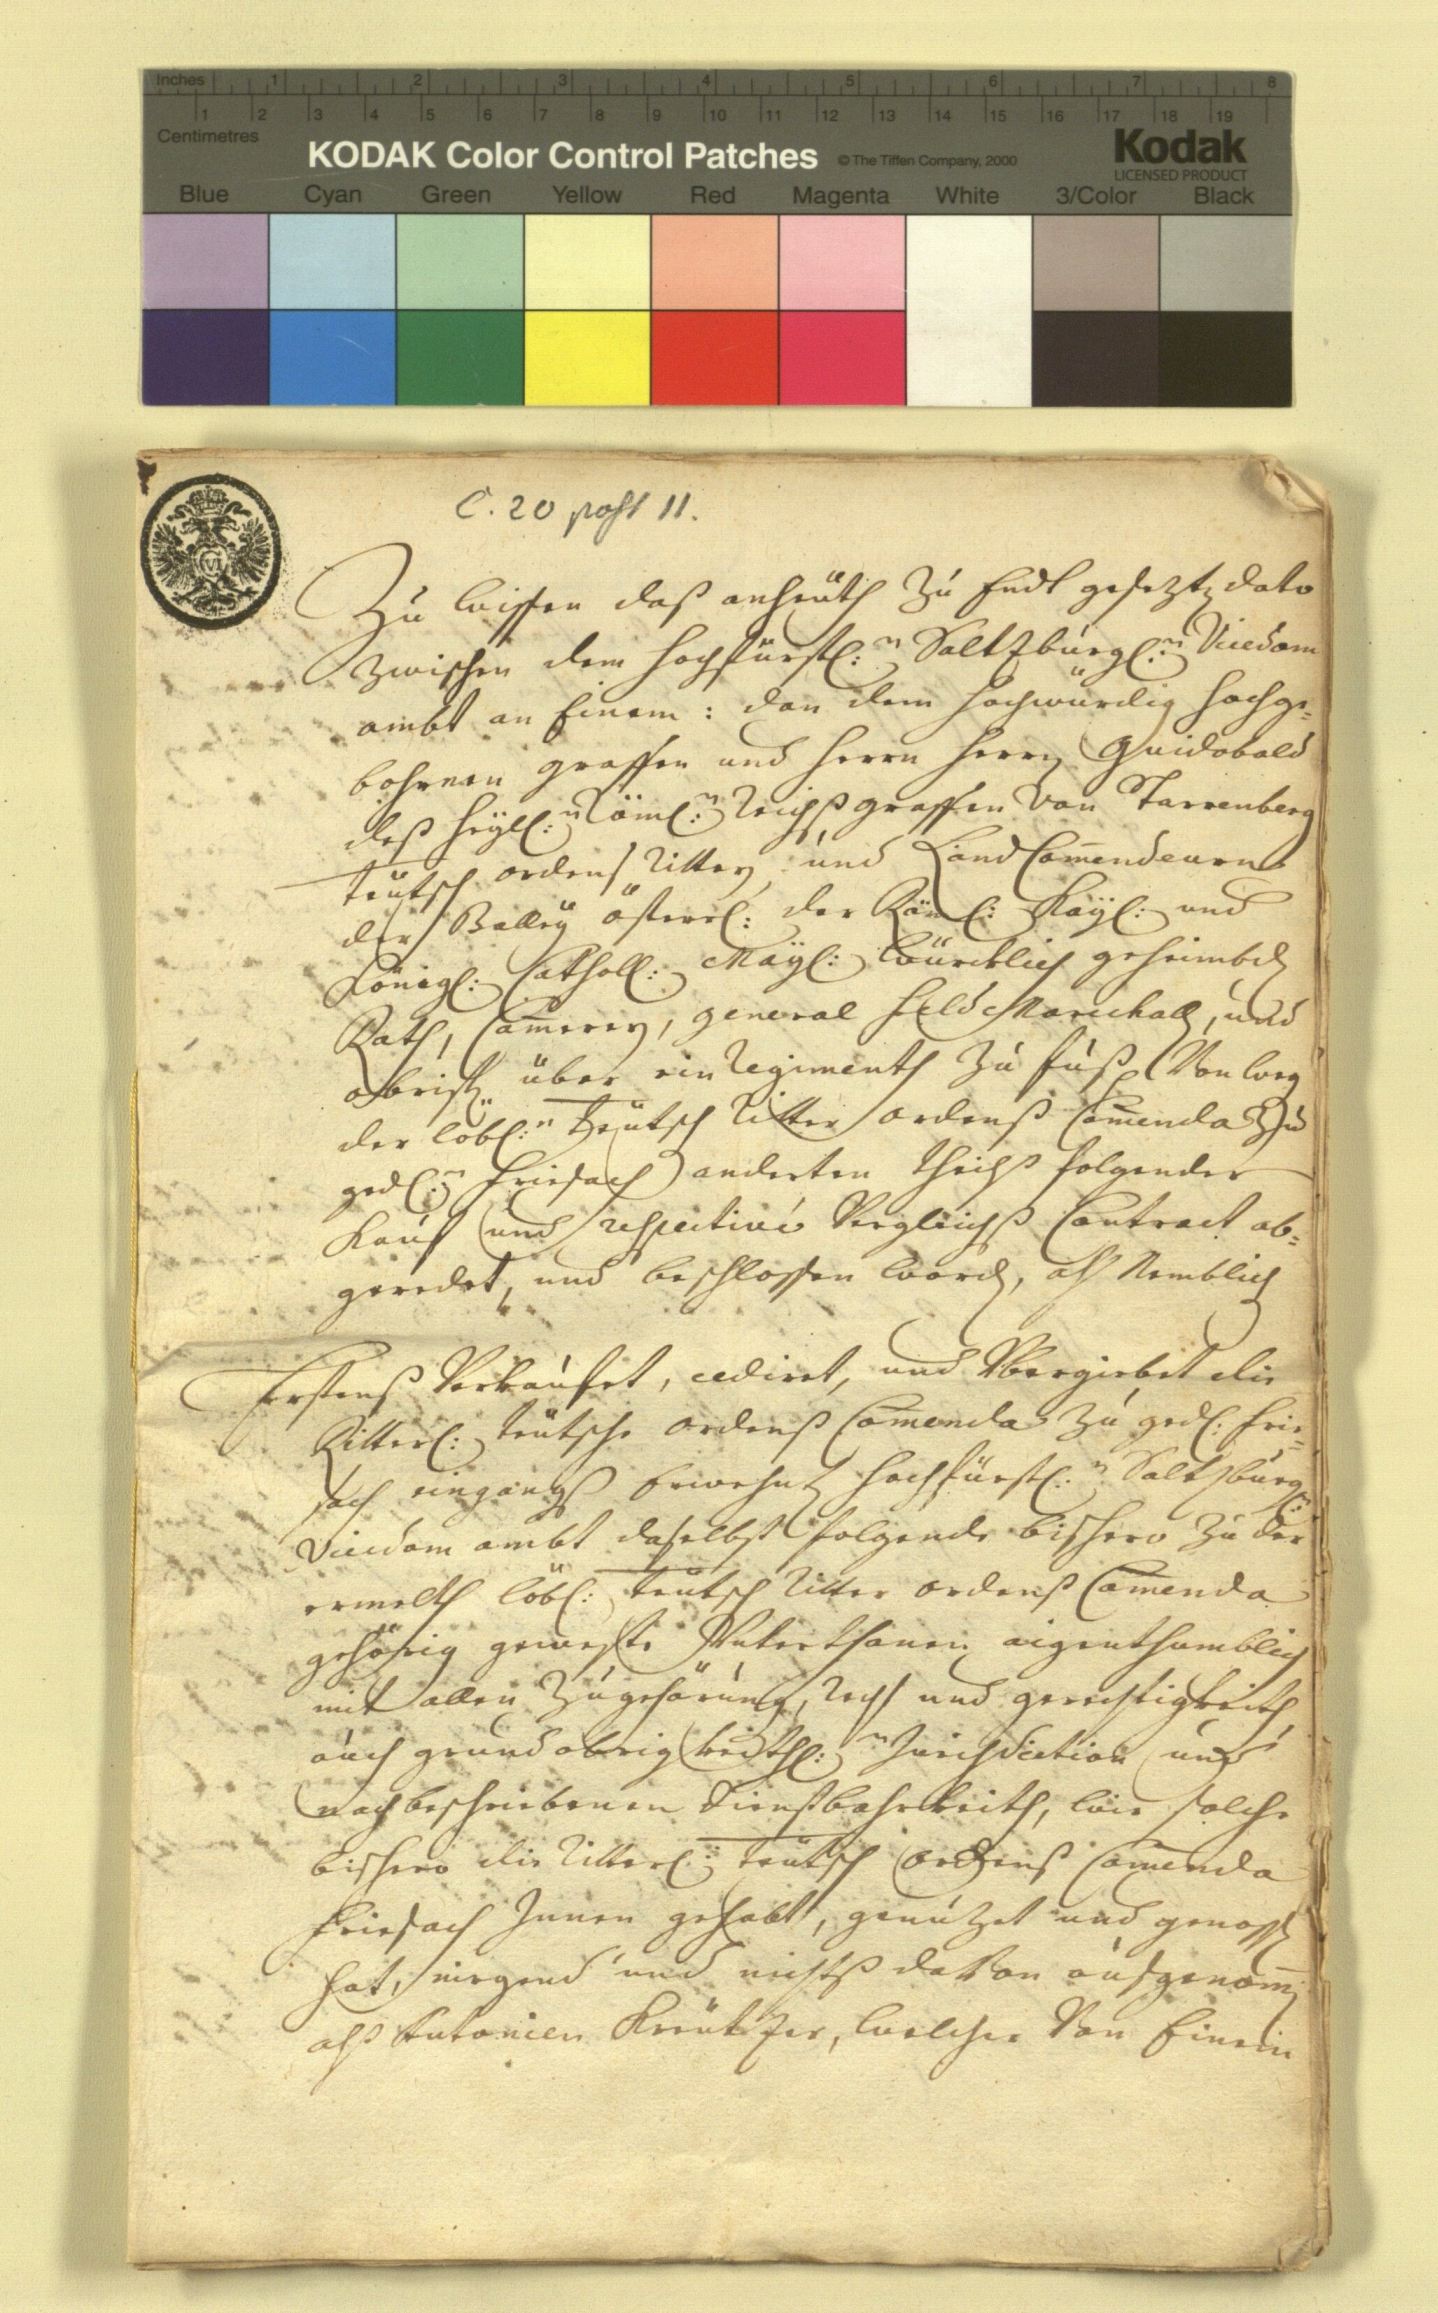 Inches 1 2 3 4 5 6 7 8
1 2 3 4 5 6 7 8 9 10 11 12 13 14 15 16 17 18 19
Centimetres
KODAK Color Control Patches © The Tiffen Company, 2000 Kodak
LICENSED PRODUCT
Blue Cyan Green Yellow Red Magenta White 3/Color Black
C. 20 post 11.
VI
Zu wissen daß anheüth zu Endt gesezten dato
zwischen dem hochfürstl:n Saltzburgl:n Vicedom
ambt an Einem: dan dem hochwürdig hochge=
bohrnen graffen und herrn herrn Guidobald
deß heyl:n Röml:n Reichßgraffen von Starrenberg
teütsch ordens Ritter, und Land Comendeurn
der Balley österr: der Röml: Kayl: und
Königl: Cathol: Mayl: würcklich geheimben
Rath, Camerer, general Feld Marschall, und
obristen über ein Regimenth zu fuß (Von weg
der löbl:n teütsch Ritter ordenß Comenda zu
gedl:n Friesach) anderten theilß folgender
Kauf und respective Vergleichß Contract ab=
geredet, und beschlossen worden, alß Nemblich
Erstenß Verkaufet, cediret, und Ybergiebet die
Ritterl: teütsche ordenß Comenda zu gedl: Frie=
sach eingangß Erwehnten hochfürstl:n Saltzburgl:n
Vicedom ambt daselbst folgende bishero zu der
ermelth löbl: teütsch Ritter ordenß Comenda
gehörig geweste Unterthanen aigenthumblich
mit allen zugehörung, Recht und gerechtigkeith,
auch grundobrigkeithl:n Jurisdiction und
nachbeschriebenen Dienstbahrkeith, wie solche
bishero die Ritterl: teütsch ordenß Comenda
Friesach Innen gehabt, genutzet und genossen
hat, nirgend und nichtß davon außgenomen
alß Antonien Kreützer, welcher Von Einem